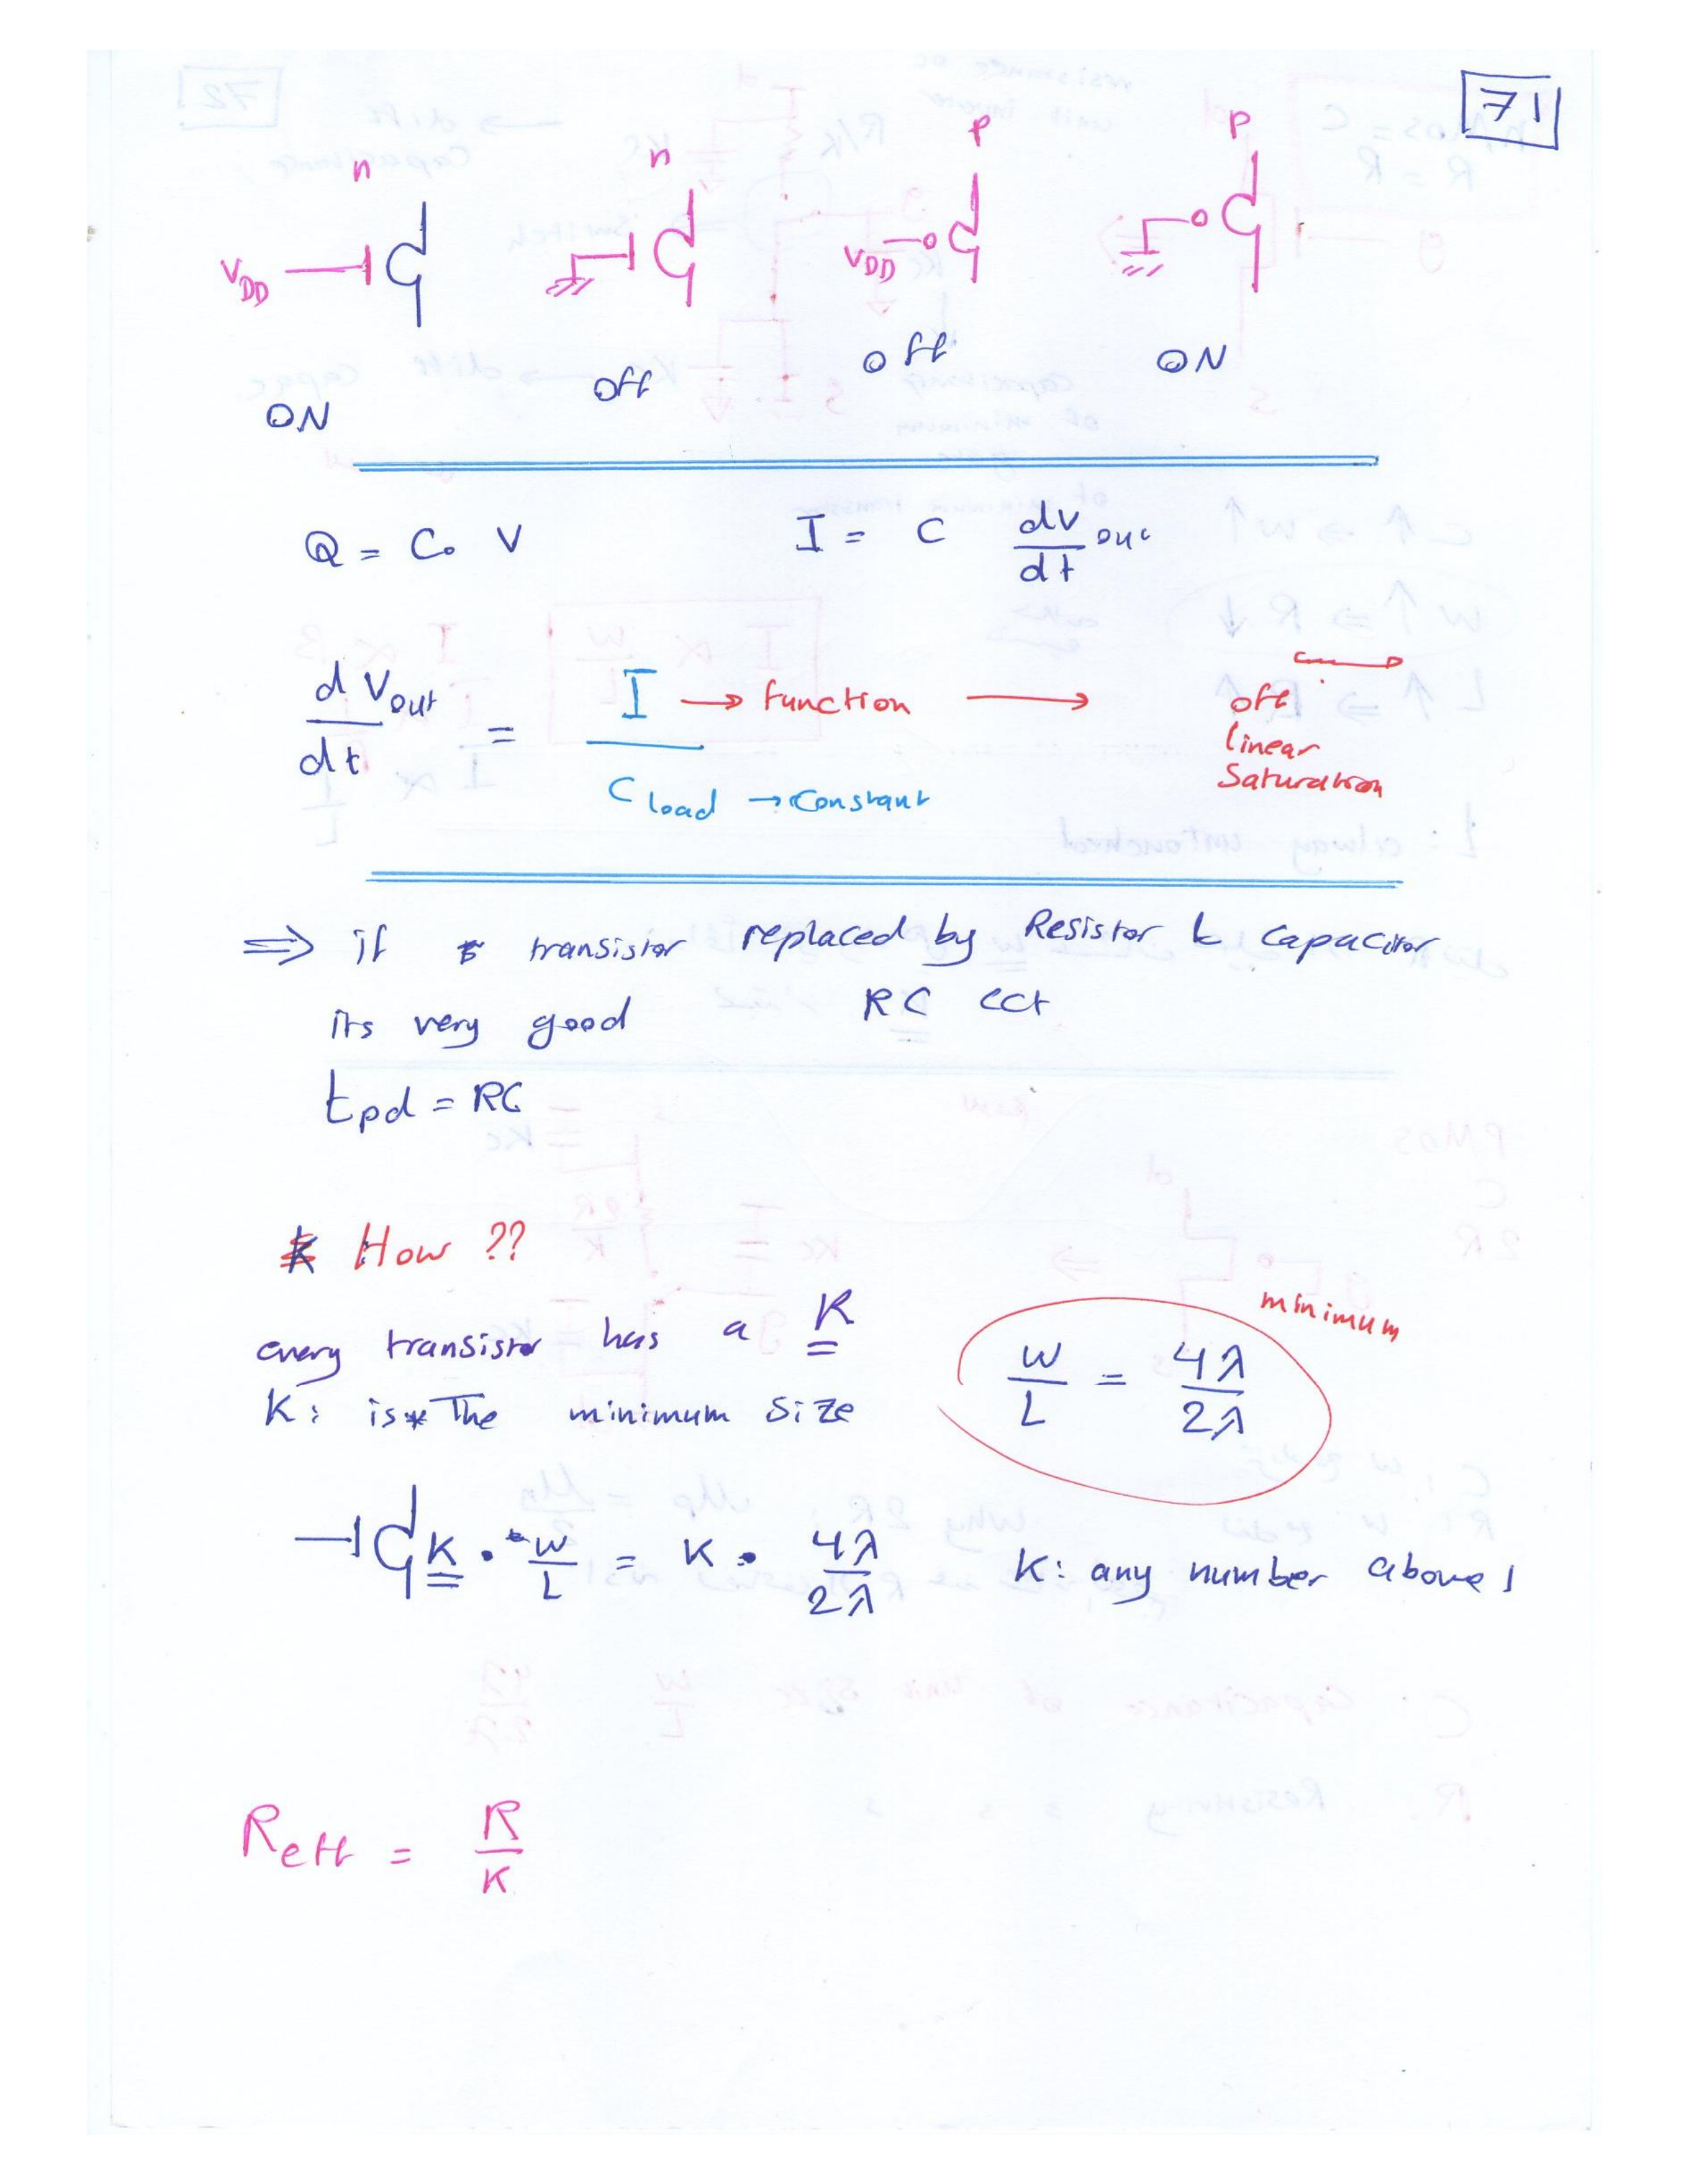 71
n n P P
V_DD V_DD
ON off off ON
Q = C. V I = C dv/dt out
d Vout / dt = I / C load
I → function → off
linear
Saturation
C load → Constant
⇒ if transistor replaced by Resistor & Capacitor
its very good RC cct
tpd = RC
How ??
every transistor has a K
minimum
W/L = 4λ/2λ
K: is * The minimum size
K . W/L = K . 4λ/2λ K: any number above 1
Reff = R/K